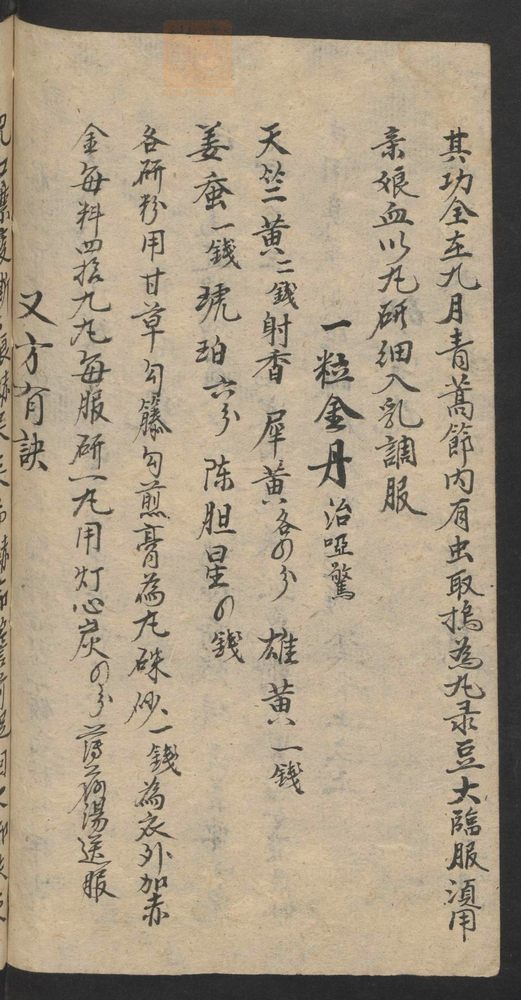 其功全在九月青蒿節内有虫取搗為丸彔豆大臨服須用
亲娘血以丸研细入乳調服
一粒金丹 治啞驚
天竺黄二錢 射香 犀黄各の分 雄黄一錢
姜蚕一錢 琥珀六分 陈胆星の錢
各研粉用甘草勾籐勾煎膏為丸硃砂一錢為衣外加赤
金每料四拾九丸每服研一丸用灯心炭の分薄荷湯送服
又方有訣